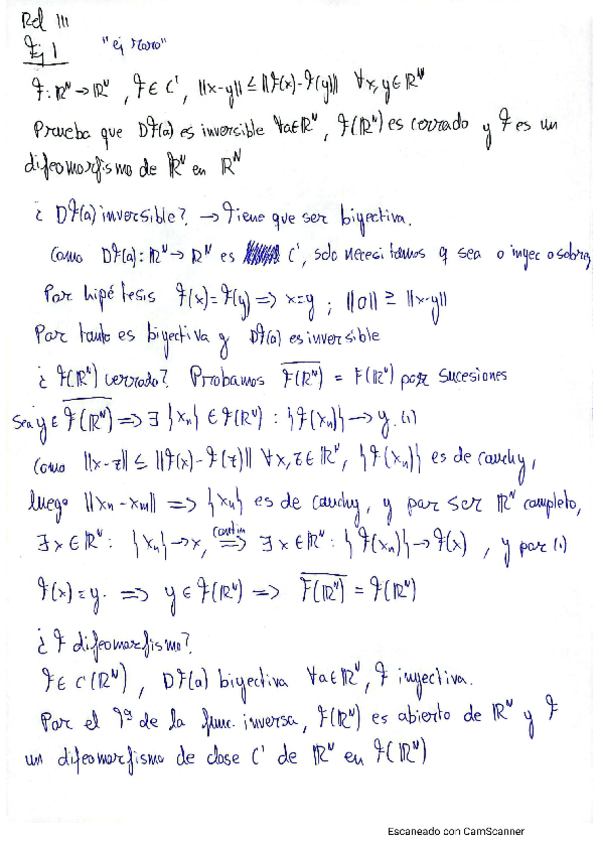 Rel III
Ej 1 "ej raro"
F: ℝᴺ → ℝᴺ, F ∈ C¹, ||x-y|| ≤ ||F(x)-F(y)|| ∀x,y ∈ ℝᴺ
Prueba que DF(a) es inversible ∀a∈ℝᴺ, F(ℝᴺ) es cerrado y F es un
difeomorfismo de ℝᴺ en ℝᴺ
¿ DF(a) inversible? → Tiene que ser biyectiva.
Como DF(a): ℝᴺ → ℝᴺ es C¹, solo necesitamos q sea o inyec o sobrey
Por hipótesis F(x)=F(y) => x=y ; ||0|| ≥ ||x-y||
Por tanto es biyectiva y DF(a) es inversible
¿ F(ℝᴺ) cerrado? Probamos \overline{F(ℝᴺ)} = F(ℝᴺ) por sucesiones
Sea y ∈ \overline{F(ℝᴺ)} => ∃ {xₙ} ∈ F(ℝᴺ) : {F(xₙ)} → y. (1)
Como ||x-z|| ≤ ||F(x)-F(z)|| ∀x,z∈ℝᴺ, {F(xₙ)} es de cauchy,
luego ||xₙ-xₘ|| => {xₙ} es de cauchy, y por ser ℝᴺ completo,
∃x∈ℝᴺ: {xₙ}→x, contin => ∃x∈ℝᴺ: {F(xₙ)}→F(x) , y por (1)
F(x)=y. => y∈F(ℝᴺ) => \overline{F(ℝᴺ)} = F(ℝᴺ)
¿ F difeomorfismo?
F∈C¹(ℝᴺ) , DF(a) biyectiva ∀a∈ℝᴺ, F inyectiva.
Por el Tª de la func. inversa, F(ℝᴺ) es abierto de ℝᴺ y F
un difeomorfismo de clase C¹ de ℝᴺ en F(ℝᴺ)
Escaneado con CamScanner